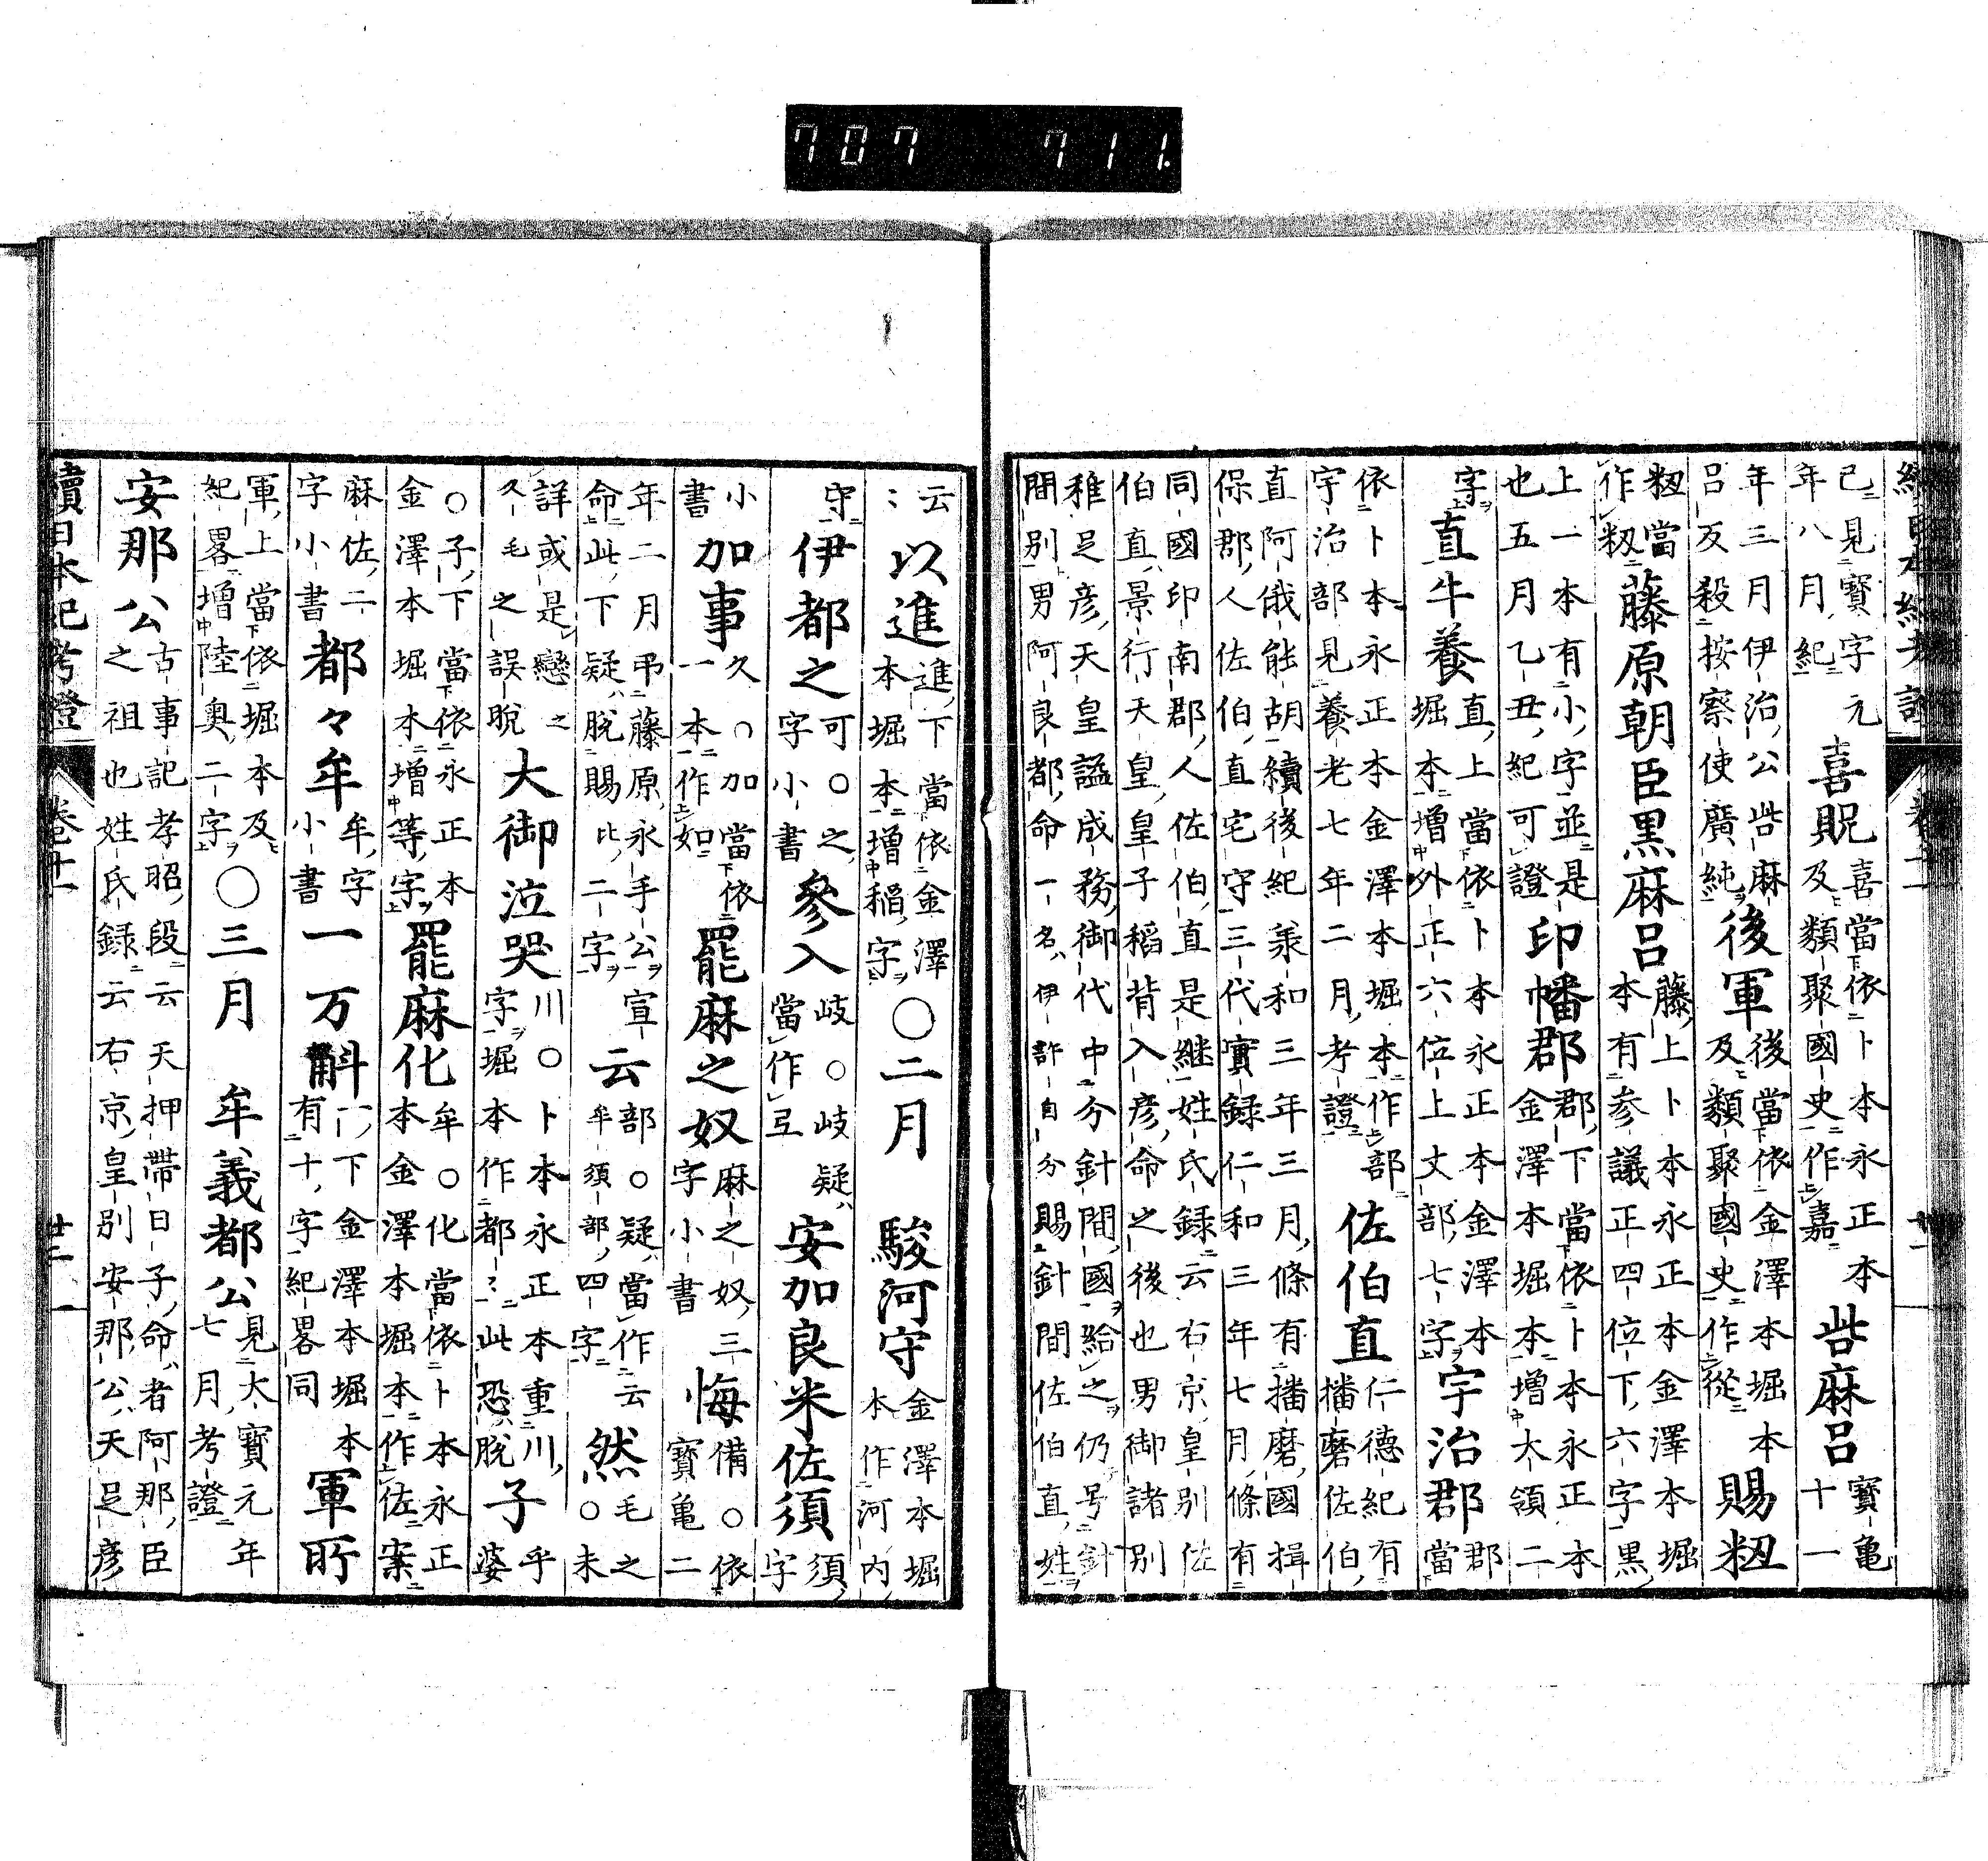 707 711.
已見寶字元年八月紀 喜䝨 喜當依卜本永正本及類聚國史作嘉 呰麻呂 寶亀十一
年三月伊治公呰麻呂反殺按察使廣純 後軍 後當依金澤本堀本及類聚國史作從 賜籾
籾當作籾 藤原朝臣黒麻呂 藤上卜本永正本金澤本堀本有参議正四位下六字黒
上一本有小字並是也五月乙丑紀可證 印幡郡 郡下當依卜本永正本金澤本堀本増大領二
字 直牛養 直上當依卜本永正本金澤本堀本増外正六位上丈部七字 宇治郡 郡當
依卜本永正本金澤本堀本作部宇治部見養老七年二月考證 佐伯直 仁德紀有播磨佐伯
直阿俄能胡續後紀羕和三年三月條有播磨國揖保郡人佐伯直宅守三代實録仁和三年七月條有
同國印南郡人佐伯直是継姓氏録云右京皇別佐伯直景行天皇皇子稻背入彦命之後也男御諸別
稚足彦天皇謚成務御代中分針間國給之仍号針間別男阿良都命一名伊許自分賜針間佐伯直姓
續日本紀考證 卷十一 廿二
云〻 以進 進下當依金澤本堀本増稲字 ○二月 駿河守 金澤本堀本作河内
守 伊都之 可○之字小書 參入 岐○岐疑當作㠪 安加良米佐須 須字
小書 加事 久○加當依一本作如 罷麻之奴 麻之奴三字小書 悔 備○依寶亀二
年二月弔藤原永手公宣命此下疑脱賜比二字 云 部○疑當作云牟須部四字 然 毛之○未
詳或是戀之久毛之誤脱 大御泣哭 川○卜本永正本重川字堀本作都〻此恐脱 子 乎婆
○子下當依永正本金澤本堀本増等字 罷麻化 牟○化當依卜本永正本金澤本堀本作佐案
麻佐二字小書 都々牟 牟字小書 一万斛 一下金澤本堀本有十字紀畧同 軍所
軍上當依堀本及紀畧増陸奥二字 ○三月 牟義都公 見大寶元年七月考證
安那公 古事記孝昭段云天押帶日子命者阿那臣之祖也姓氏録云右京皇別安那公天足彦